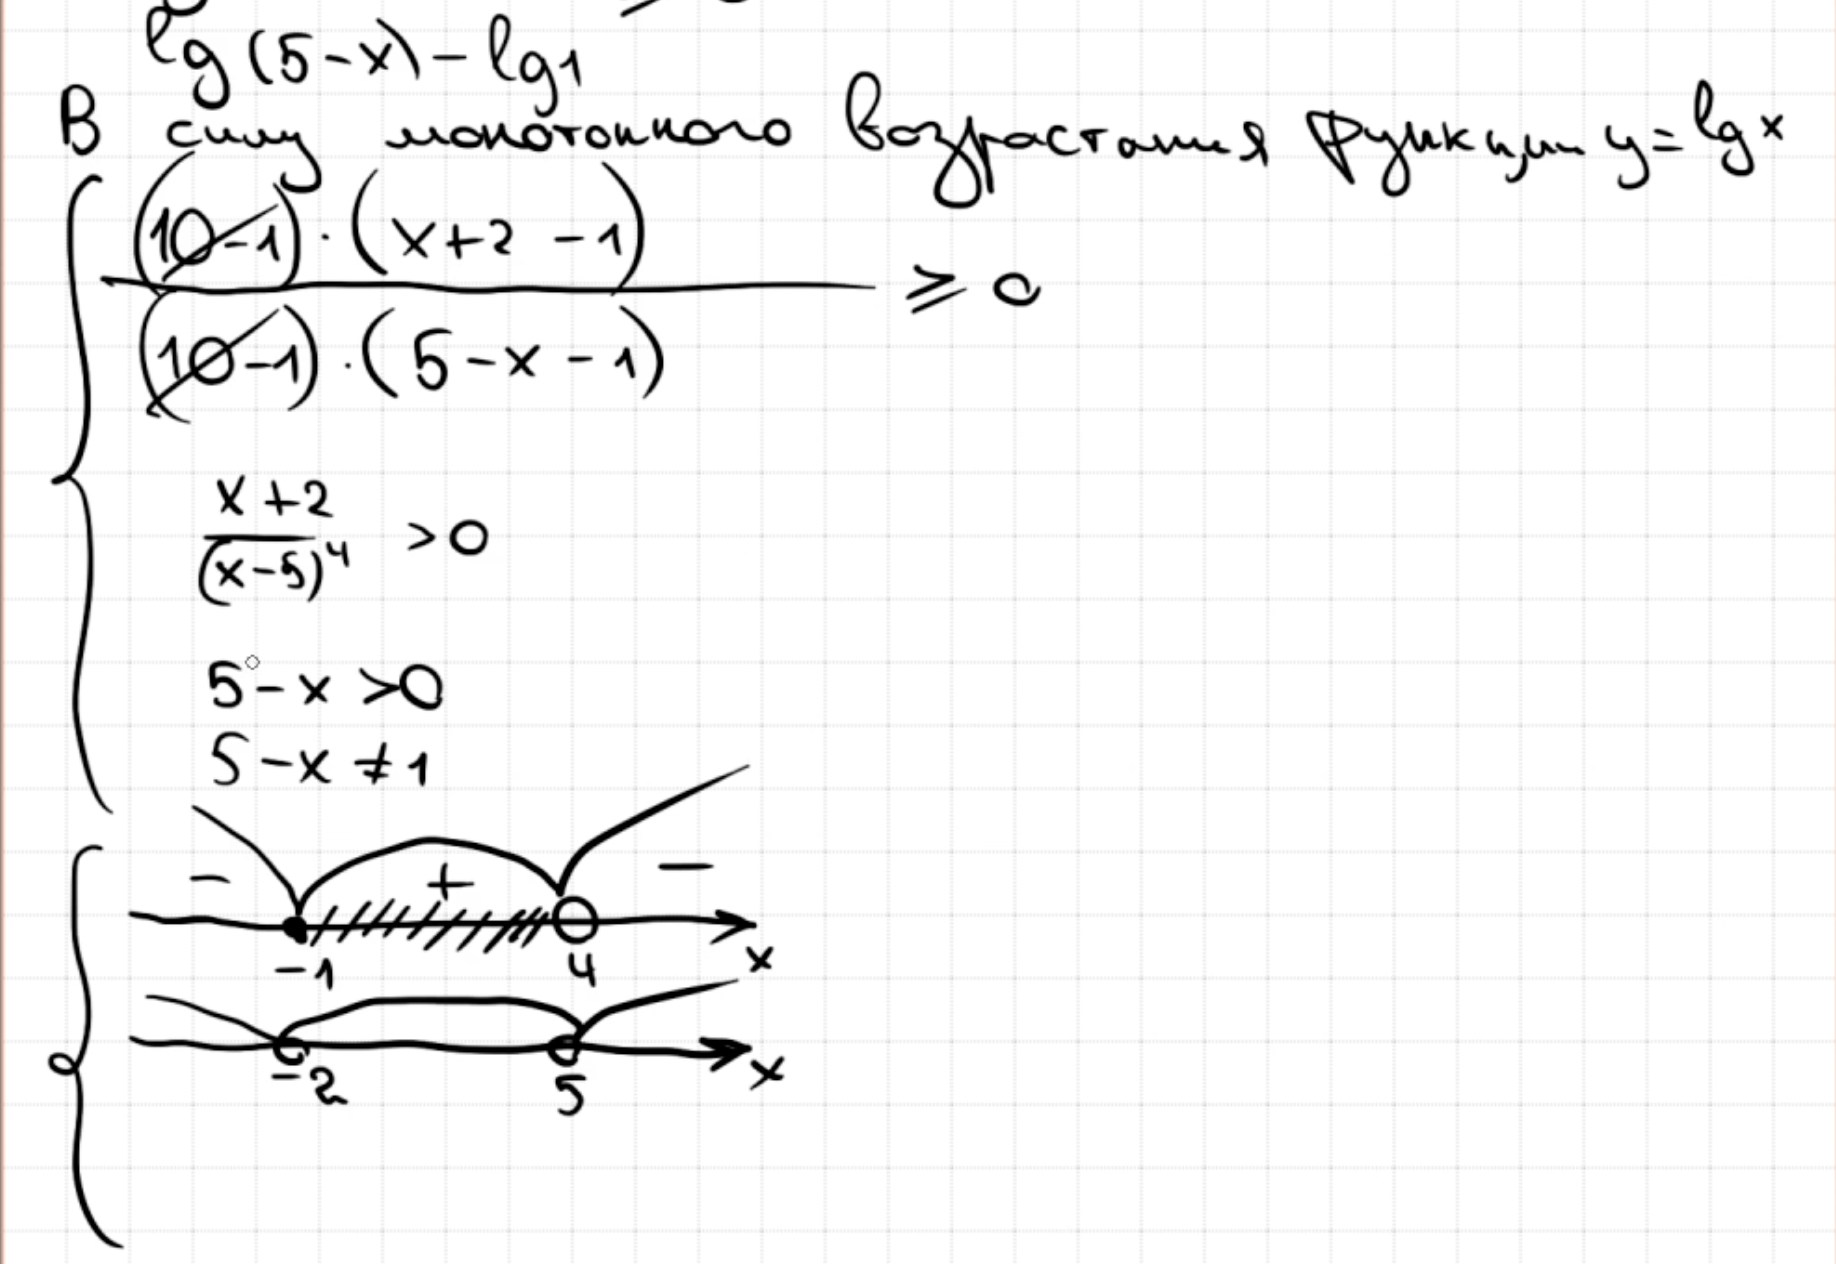 lg (5-x) - lg1
В силу монотонного возрастания функции y = lg x
(10-1) · (x+2 -1)
≥ 0
(10-1) · (5-x-1)
x+2
> 0
(x-5)^4
5-x > 0
5-x ≠ 1
- + -
-1 4 x
-2 5 x